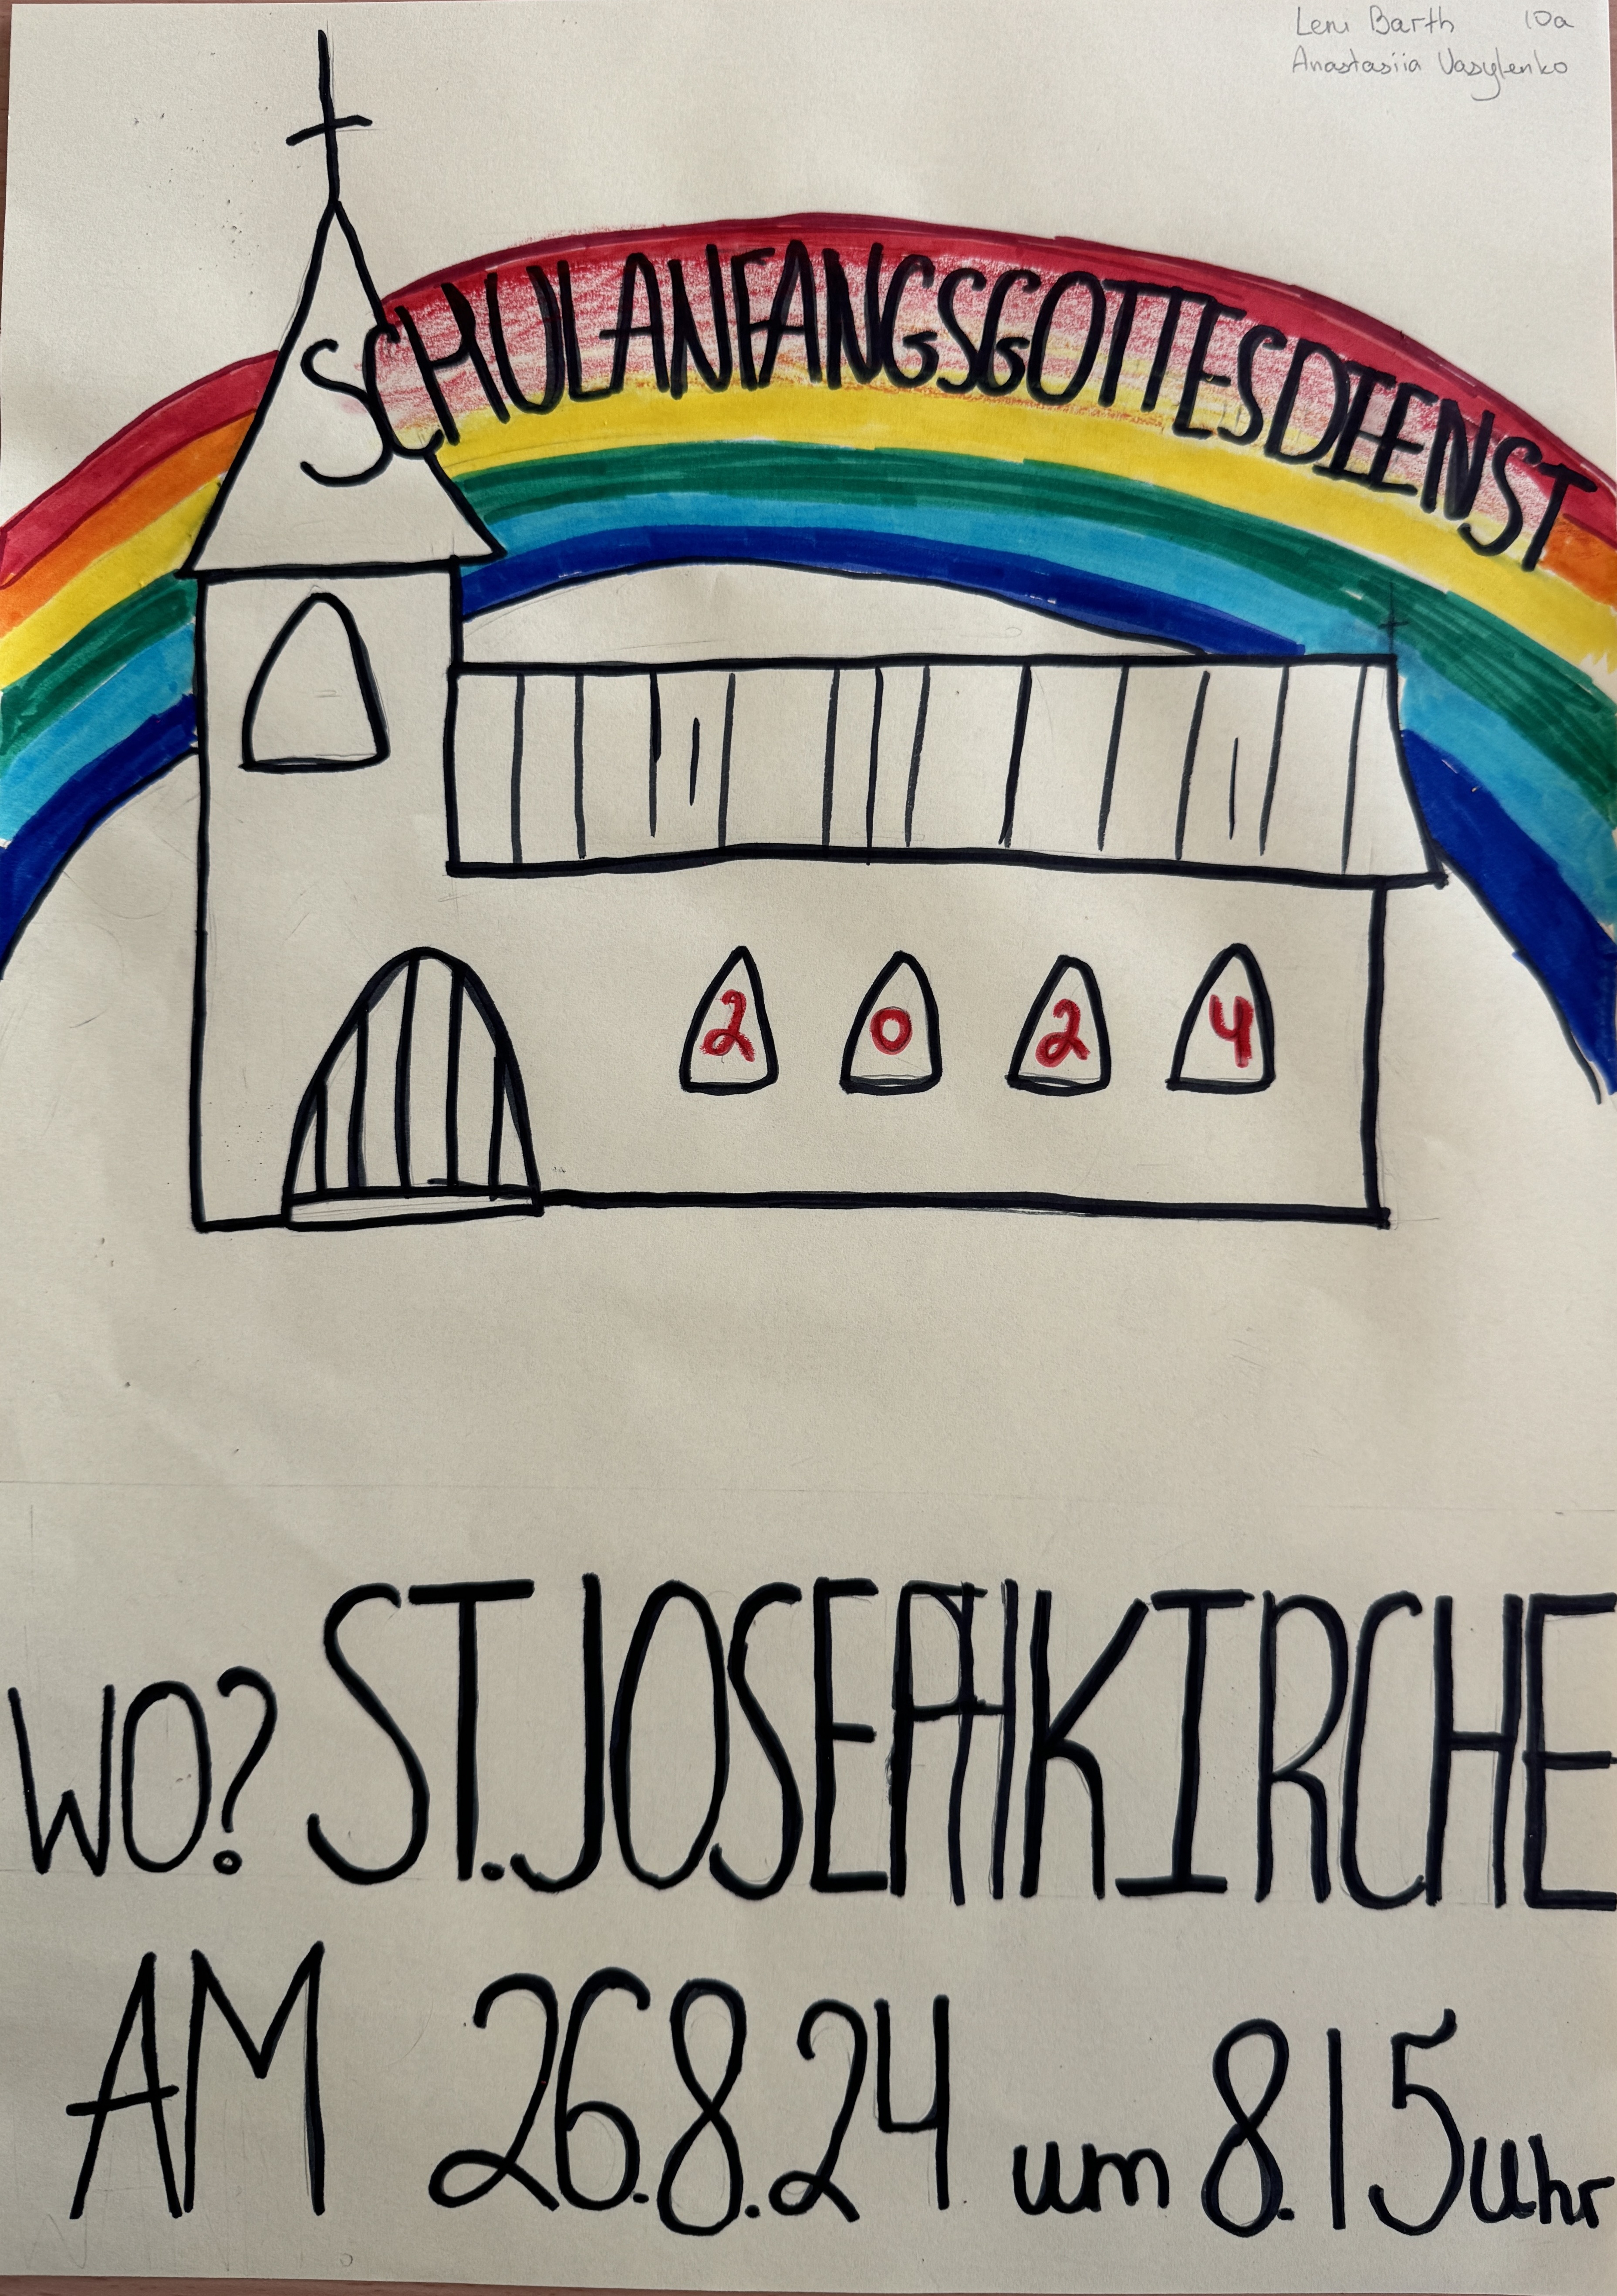 Leni Barth 10a
Anastasiia Vasylenko
SCHULANFANGSGOTTESDIENST
2 0 2 4
WO? ST.JOSEPHKIRCHE
AM 26.8.24 um 8.15 uhr